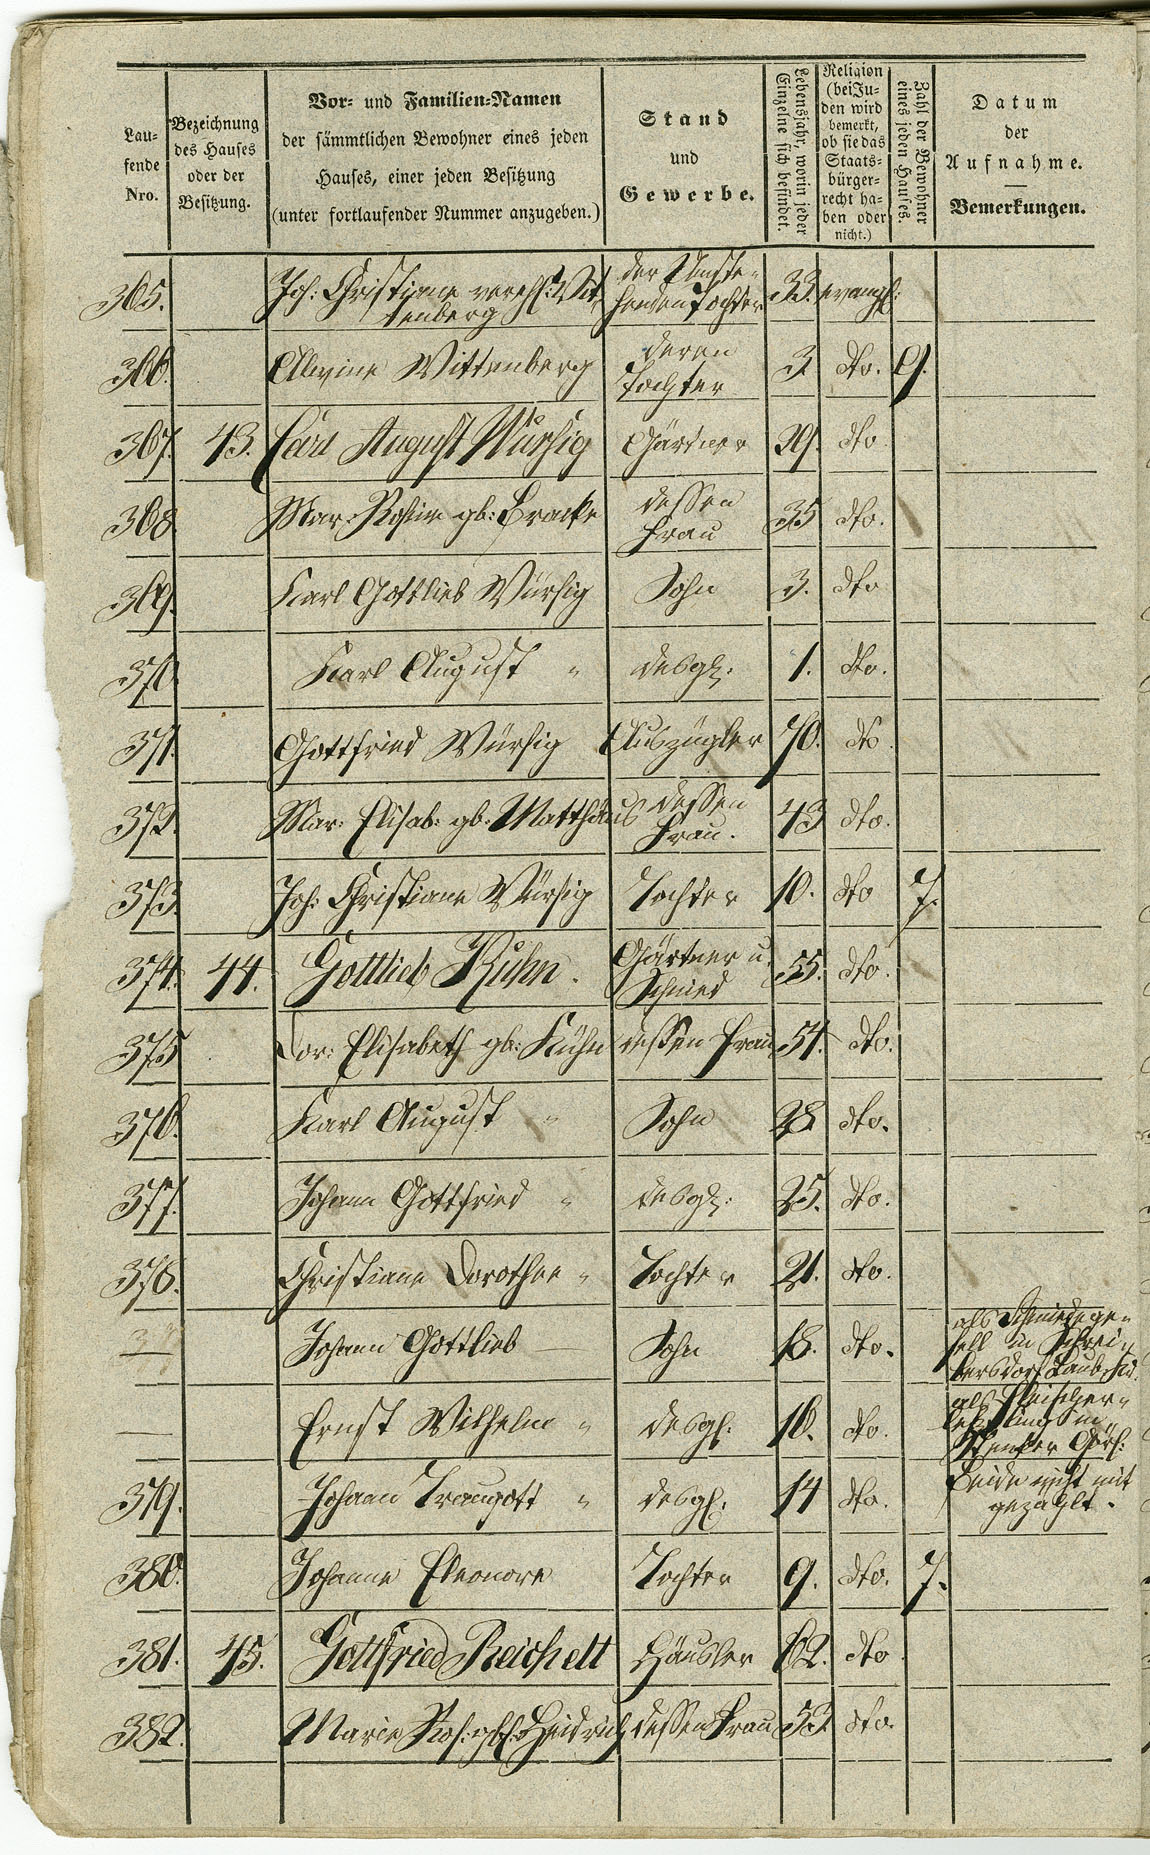 Lau-
fende
Nro.
Bezeichnung
des Hauses
oder der
Besitzung.
Vor- und Familien-Namen
der sämmtlichen Bewohner eines jeden
Hauses, einer jeden Besitzung
(unter fortlaufender Nummer anzugeben.)
Stand
und
Gewerbe.
Lebensjahr, worin jeder
Einzelne sich befindet.
Religion
(bei Ju-
den wird
bemerkt,
ob sie das
Staats-
bürger-
recht ha-
ben oder
nicht.)
Zahl der Bewohner
eines jeden Hauses.
Datum
der
Aufnahme.
Bemerkungen.
365. Joh: Christiane verehl: Wit- tenberg der Umste- henden Tochter 33. evangl:
366. Alwine Wittenberg deren Tochter 3. dto. 9.
367. 43. Carl August Würsig Gärtner 39. dto
368. Mar: Rosine gb: Bracke dessen Frau 35 dto.
369. Karl Gottlieb Würsig Sohn 3. dto
370. Karl August " desgl: 1. dto.
371. Gottfried Würsig Auszügler 70. dto.
372. Mar: Elisab: gb: Matthäus dessen Frau. 43 dto.
373. Joh: Christiane Würsig Tochter 10. dto 7.
374. 44. Gottlieb Kühn. Gärtner u. Schmied 55. dto.
375 Dor: Elisabeth gb: Kühn dessen Frau 54. dto.
376. Karl August " Sohn 28. dto.
377. Johann Gottfried " desgl: 25. dto.
378. Christiane Dorothee " Tochter 21. dto.
— Johann Gottlieb — Sohn 18. dto. als Schmiedege-
sell in Schrei-
bersdorf Laub:
— Ernst Wilhelm " desgl: 16. dto. als Fleischer-
lehrling in
Görl:
379. Johann Traugott " desgl. 14 dto. beide nicht mit
gezählt.
380. Johanne Eleonore Tochter 9. dto. 7.
381. 45. Gottfried Reichelt Häusler 62. dto
382. Marie Ros: gb: Heidrich dessen Frau 53 dto.